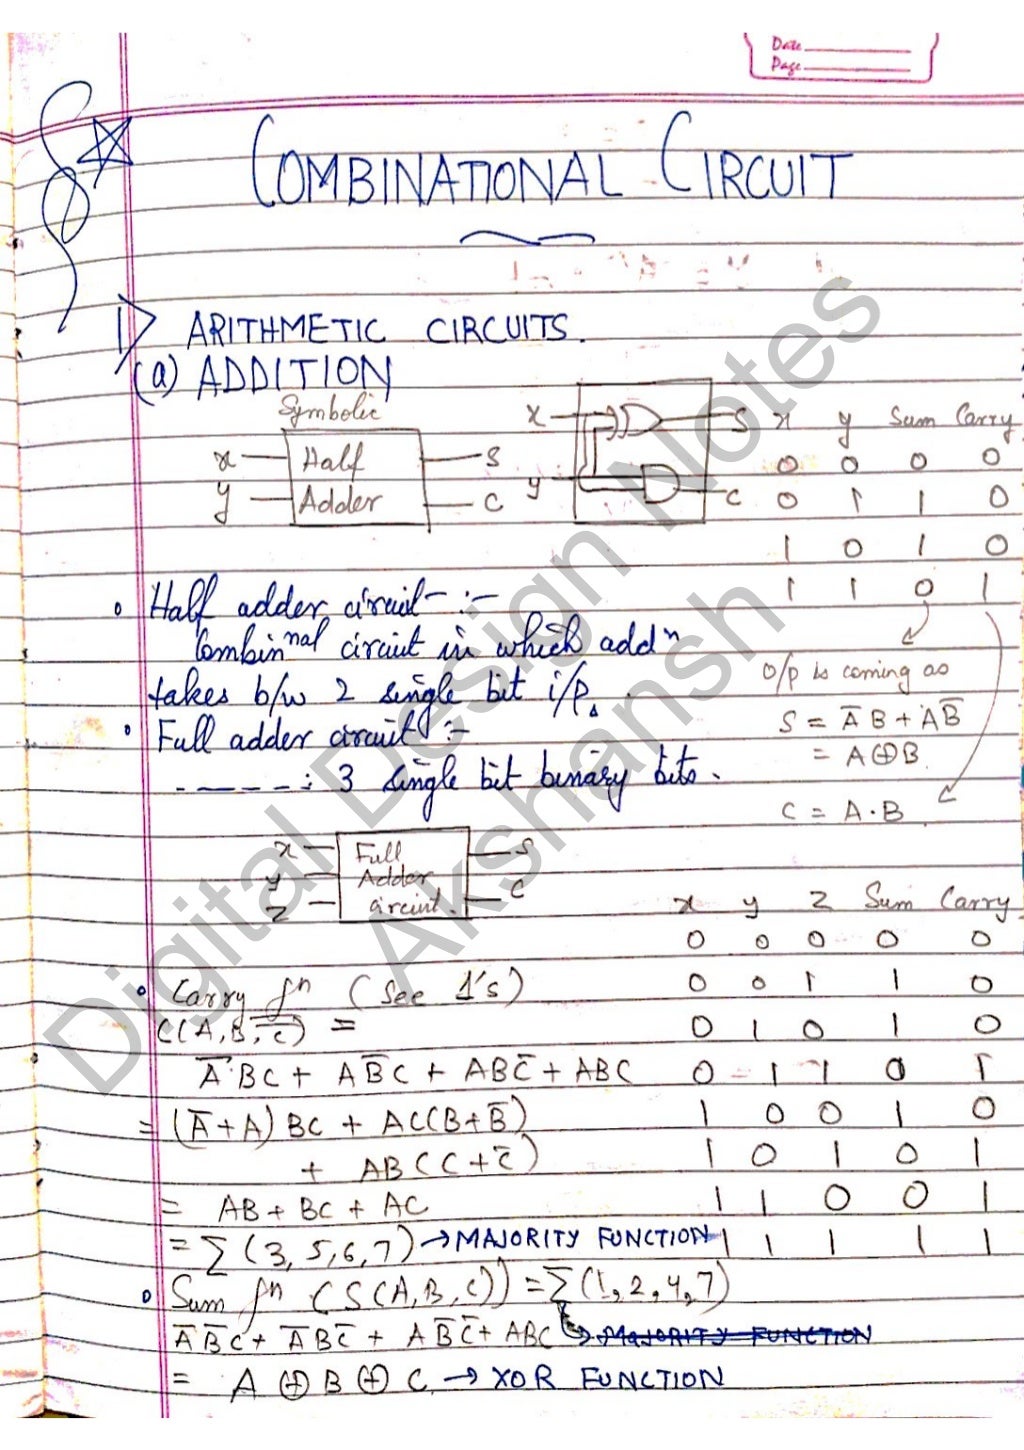 Date
Page
COMBINATIONAL CIRCUIT
1) ARITHMETIC CIRCUITS.
(a) ADDITION
Symbolic
x Half S
y Adder C
x S
y C
x y Sum Carry
0 0 0 0
0 1 1 0
1 0 1 0
1 1 0 1
• Half adder circuit :-
Combinnal circuit in which addn
takes b/w 2 single bit i/p.
O/p is coming as
S = A̅ B + A B̅
= A⊕B.
C = A·B
• Full adder circuit :-
------: 3 single bit binary bits.
x Full S
y Adder C
z circuit.
x y z Sum Carry
0 0 0 0 0
0 0 1 1 0
0 1 0 1 0
0 1 1 0 1
1 0 0 1 0
1 0 1 0 1
1 1 0 0 1
1 1 1 1 1
• Carry fn (See 1's)
C(A,B,c̅) =
A̅BC + AB̅C + ABC̅ + ABC
= (A̅+A) BC + AC(B+B̅)
+ AB(C+C̅)
= AB + BC + AC
= Σ(3,5,6,7) → MAJORITY FUNCTION
• Sum fn (S(A,B,C)) = Σ(1,2,4,7)
A̅B̅C + A̅BC̅ + AB̅C̅ + ABC → MAJORITY FUNCTION
= A ⊕ B ⊕ C → XOR FUNCTION
Digital Design Notes
Akshansh